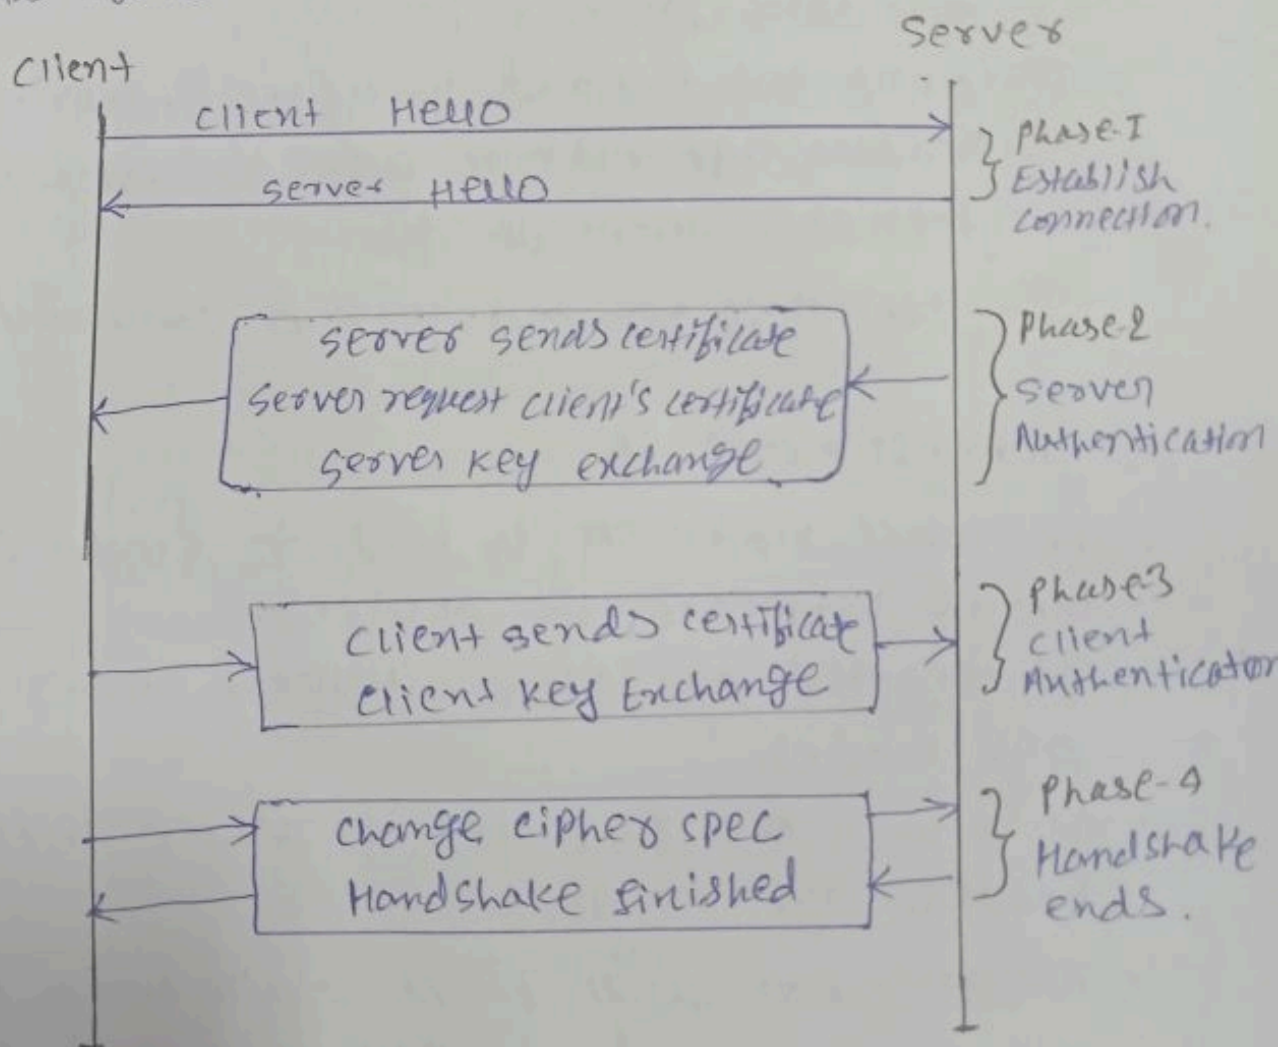 Client
Server
Client Hello
Phase-I
Establish
connection.
Server Hello
Server sends certificate
Server request client's certificate
Server key exchange
Phase-2
Server
Authentication
Client sends certificate
Client Key Exchange
Phase-3
Client
Authenticator
Change cipher spec
Handshake finished
Phase-4
Handshake
ends.